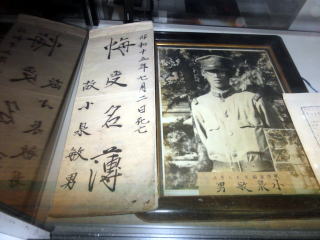 昭和十五年七月二日死亡
悔受名薄
故小泉敏男
小泉敏男